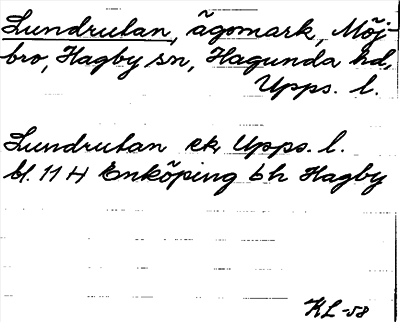 Lundrutan, ägomark, Möj-
bro, Hagby sn, Hagunda hd,
Upps. l.
Lundrutan ek, Upps. l.
bl. 11 H Enköping 6 h Hagby
KL -58